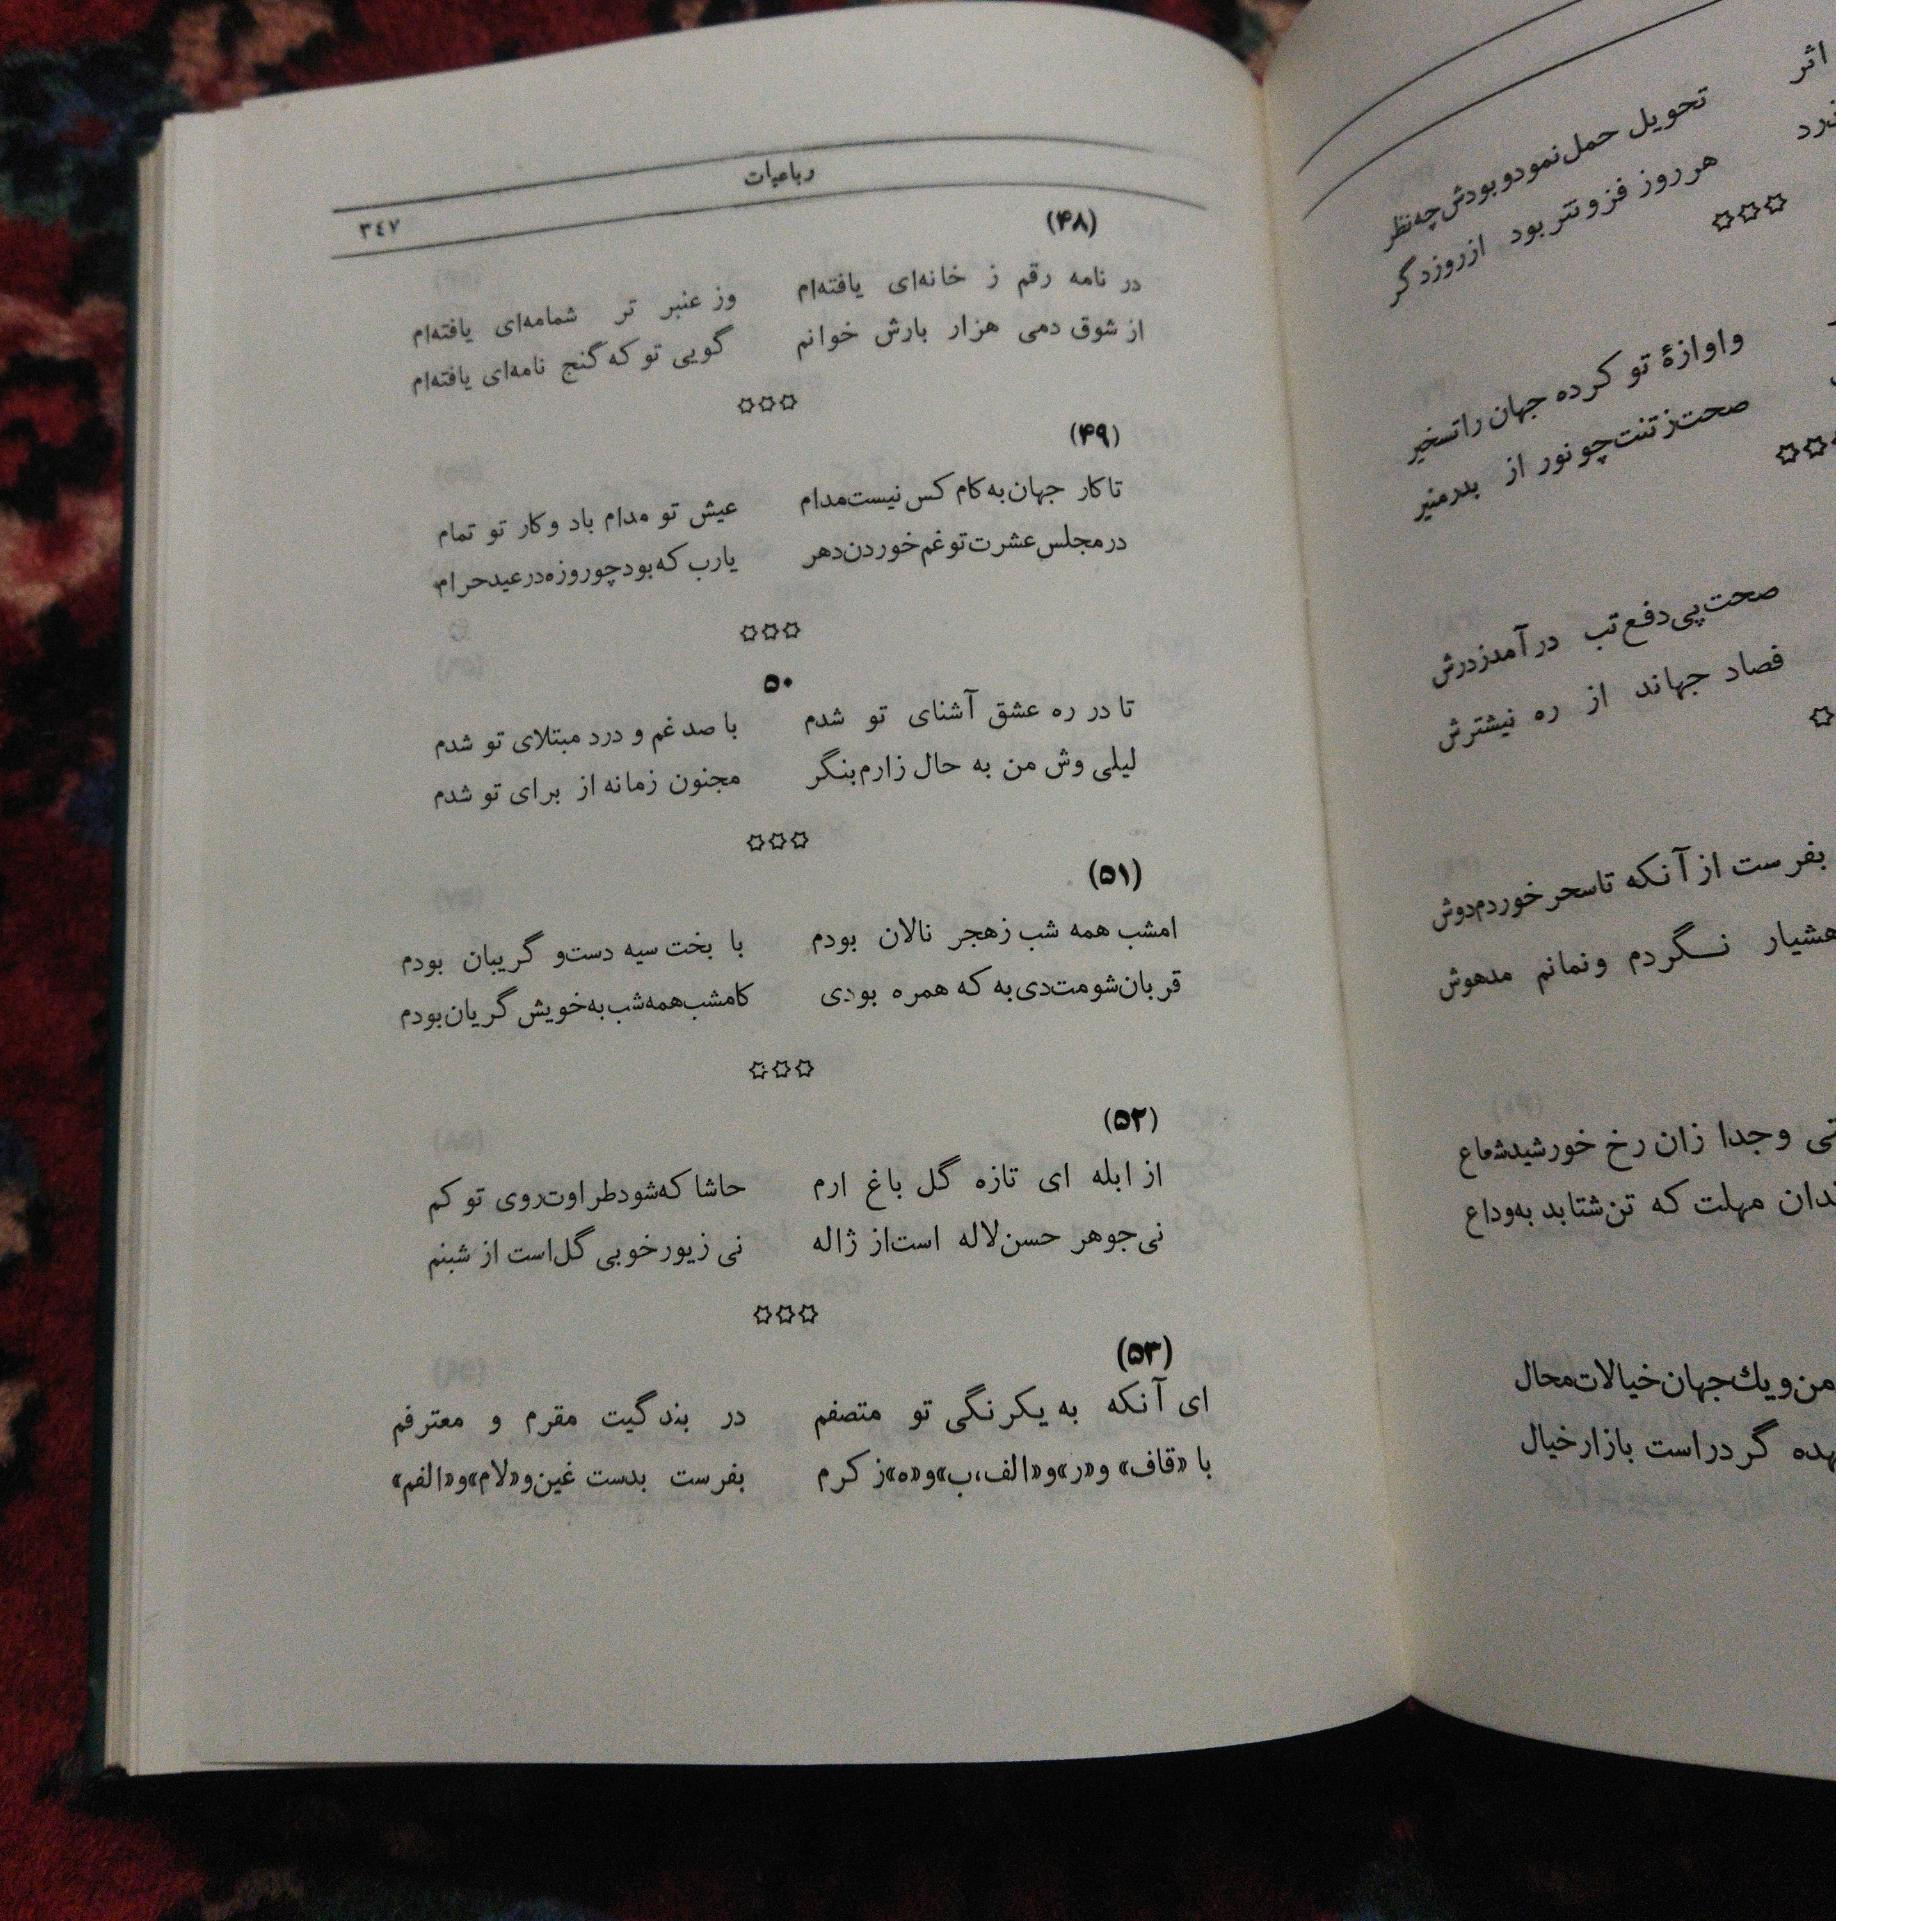 رباعیات
۳٤۷
(۴۸)
در نامه رقم ز خانه‌ای یافته‌ام وز عنبر تر شمامه‌ای یافته‌ام
از شوق دمی هزار بارش خوانم گویی تو که گنج نامه‌ای یافته‌ام
(۴۹)
تا کار جهان به کام کس نیست مدام عیش تو مدام باد و کار تو تمام
در مجلس عشرت تو غم خوردن دهر یارب که بود چو روزه در عید حرام
۵۰
تا در ره عشق آشنای تو شدم با صد غم و درد مبتلای تو شدم
لیلی وش من به حال زارم بنگر مجنون زمانه از برای تو شدم
(۵۱)
امشب همه شب ز هجر نالان بودم با بخت سیه دست و گریبان بودم
قربان شومت دی به که همره بودی کامشب همه شب به خویش گریان بودم
(۵۲)
از ابله ای تازه گل باغ ارم حاشا که شود طراوت روی تو کم
نی جوهر حسن لاله است از ژاله نی زیور خوبی گل است از شبنم
(۵۳)
ای آنکه به یکرنگی تو متصفم در بندگیت مقرم و معترفم
با «قاف» و «ر» و «الف، ب» و «ه» ز کرم بفرست بدست غین و «لام» و «الفم»
اثر تحویل حمل نمود و بودش چه نظر
هر روز فزونتر بود از روز دگر
و اوازهٔ تو کرده جهان را تسخیر
صحت ز تنت چو نور از بدر منیر
صحت پی دفع تب در آمد ز درش
فصاد جهاند از ره نیشترش
بفرست از آنکه تا سحر خوردم دوش
هشیار نگردم و نمانم مدهوش
وجدا زان رخ خورشید شعاع
مهلت که تن شتابد به وداع
من و یك جهان خیالات محال
گر در است بازار خیال